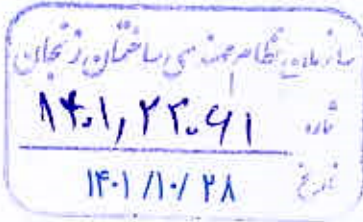 سازمان نظام مهندسی ساختمان زنجان
شماره ۱۴۰۱,۲۲۰۶۱
تاریخ ۱۴۰۱/۱۰/۲۸